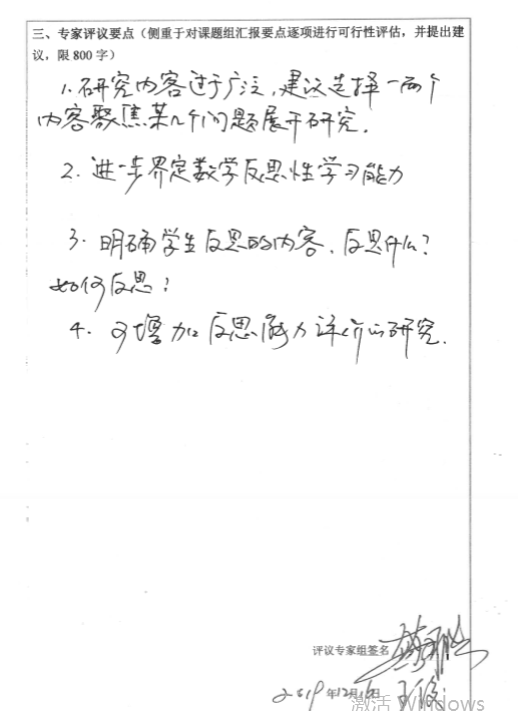 三、专家评议要点（侧重于对课题组汇报要点逐项进行可行性评估，并提出建
议，限 800 字）
1.研究内容过于广泛，建议选择一两个
内容聚焦某几个问题展开研究。
2. 进一步界定数学反思性学习能力
3. 明确学生反思的内容、反思什么？
如何反思？
4. 可增加反思能力评价的研究.
评议专家组签名
2019年12月16日
激活 Windows